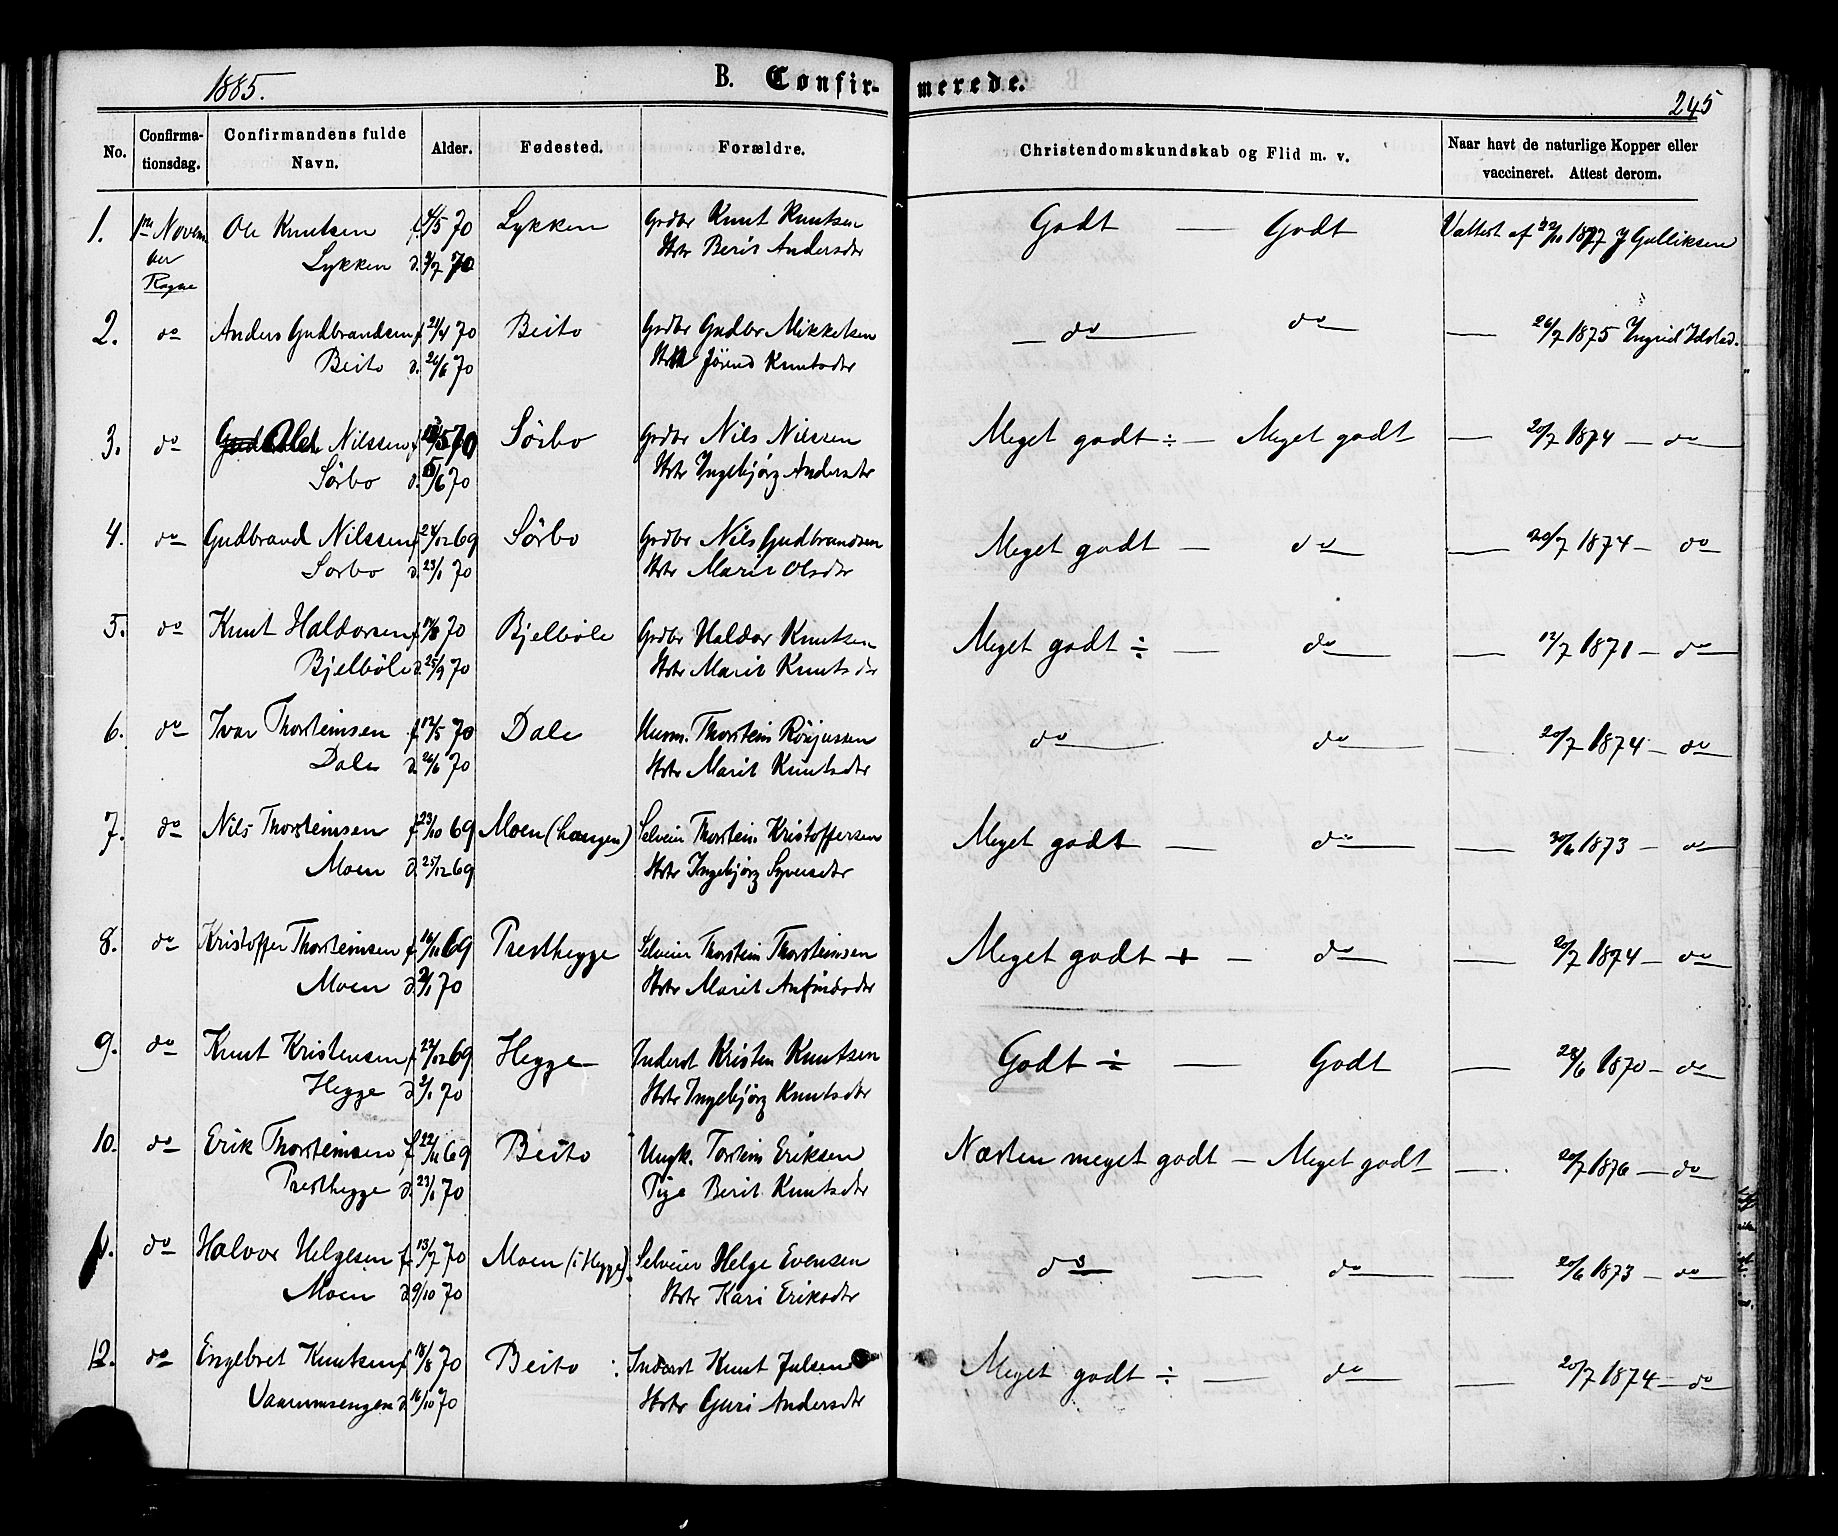 1885.
B. Confir-
merede.
245
No.
Confirma-
tionsdag.
Confirmandens fulde
Navn.
Alder.
Fødested.
Forældre.
Christendomskundskab og Flid m. v.
Naar havt de naturlige Kopper eller
vaccineret. Attest derom.
1. 1ste Novem Ole Knutsen f. 4/5 70 Lykken Grdbr Knut Knutsen Godt — Godt Vattest af 1877 J Gulliksen
ber Lykken d. 3/7 70 Hstr Berit Andersdtr
Rogne
2. do Anders Gudbrandsen f. 21/4 70 Beito Grdbr Gudbr Mikkelsen — do — do — 26/7 1875 Ingrid Ildstad.
Beito d. 26/6 70 Hstr Jörend Knutsdtr
3. do Nilssen f. 5 70 Sörbo Grdbr Nils Nilssen Meget godt ÷ — Meget godt — 20/7 1874 — do
Sörbo d. 5/6 70 Hstr Ingebjörg Andersdtr
4. do Gudbrand Nilssen f. 24/12 69 Sörbo Grdbr Nils Gudbrandsen Meget godt — do — 20/7 1874 — do
Sorbo d. 23/1 70 Hstr Marit Olsdtr
5. do Knut Haldorsen f. 70 Bjelböle Grdbr Haldor Knutsen Meget godt ÷ — do — 12/7 1871 — do
Bjelböle d. 25/9 70 Hstr Marit Knutsdtr
6. do Ivar Thorsteinsen f. 12/5 70 Dale Husm. Thorstein do do — 20/7 1874 — do
Dale d. 26/6 70 Hstr Marit Knutsdtr
7. do Nils Thorsteinsen f. 23/10 69 Moen (haugen) Selveier Thorstein Kristoffersen Meget godt — do — 30/6 1873 — do
Moen d. 25/12 69 Hstr Ingebjörg Syversdtr
8. do Kristoffer Thorsteinsen f. 16/11 69 Presthegge Selveier Thorstein Thorsteinsen Meget godt + — do — 20/7 1874 — do
Moen d. /1 70 Hstr Marit Anfindsdtr
9. do Knut Kristensen f. 22/12 69 Hegge Inderst Kristen Knutsen Godt ÷ — Godt — 28/6 1870 — do
Hegge d. 2/1 70 Hstr Ingebjörg Knutsdtr
10. do Erik Thorsteinsen f. 22/11 69 Beito Ungk. Torstein Eriksen Næsten meget godt — Meget godt — 20/7 1876 — do
Presthegge d. 23/1 70 Pige Berit Knutsdtr
11. do Halvor Helgesen f. 13/7 70 Moen (i Hegge) Selveier Helge Evensen do — do — 20/6 1873 — do
Moen d. 9/10 70 Hstr Kari Eriksdtr
12. do Engebret Knutsen f. 18/8 70 Beito Inderst Knut Julsen Meget godt ÷ — do — 20/7 1874 — do
Vaarumsengen d. 16/10 70 Hstr Guri Andersdtr